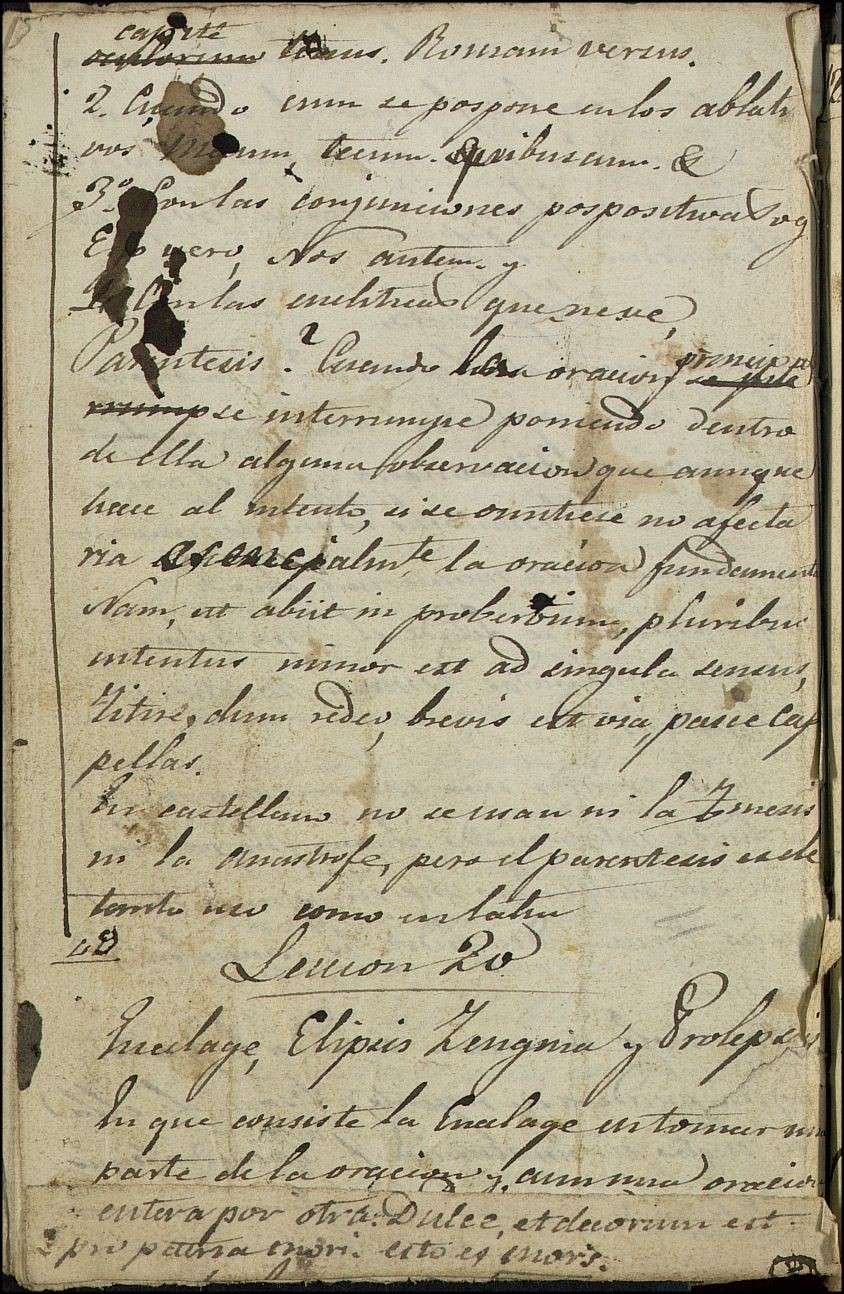 capite
oculorum tenus. Romam versus.
2. Cuando cum se pospone en los ablati
vos Mecum, tecum. Quibuscum. &
3º Con las conjunciones pospositivas v g
Ego vero, Nos autem y
4º Con las encliticas que ne ve,
Parentesis? Cuando la oracion principal
se interrumpe poniendo dentro
de ella alguna observacion que aunque
hace al intento, si se omitiese no afecta
ria esencialmte la oracion fundamental
Nam, ut abiit in proberbium, pluribus
intentus minor est ad singula sensus,
Titire, dum redeo, brevis est via, pasce ca
pellas.
En castellano no se usan ni la Tmesis
ni la Anastrofe, pero el parentesis es de
tanto uso como en latin
Leccion 20
Enalage, Elipsis Zeugma y Prolepsis
En que consiste la Enalage en tomar una
parte de la oracion y aun una oracion
entera por otra: Dulce, et decorum est
pro patria mori. esto es mors.